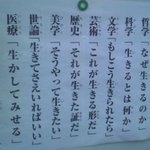 哲学「なぜ生きるのか」
科学「生きるとは何か」
文学「もしこう生きられたら」
芸術「これが生きる形だ」
歴史「これが生きた証だ」
美学「そうやって生きたい」
世論「生きてさえいればいい」
医療「生かしてみせる」